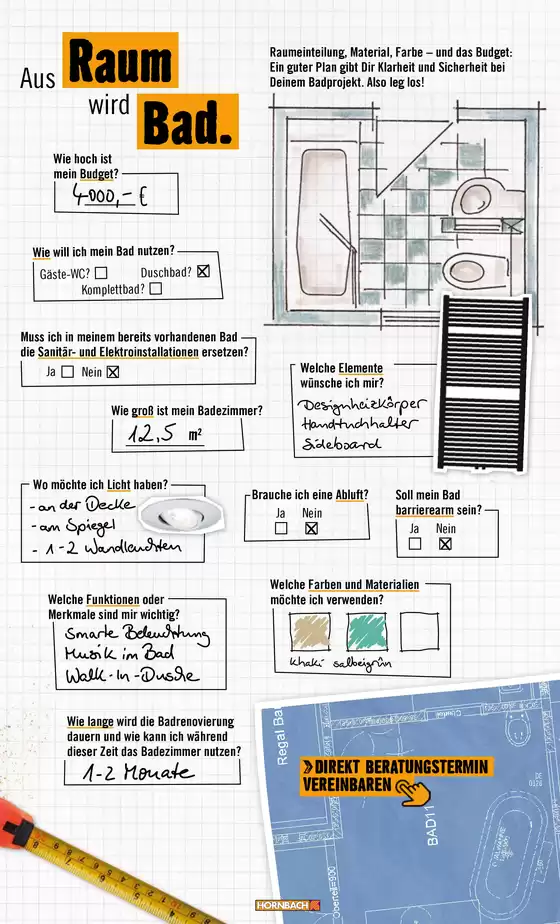 Aus Raum
wird Bad.
Raumeinteilung, Material, Farbe – und das Budget:
Ein guter Plan gibt Dir Klarheit und Sicherheit bei
Deinem Badprojekt. Also leg los!
Wie hoch ist
mein Budget?
4000,- €
Wie will ich mein Bad nutzen?
Gäste-WC? Duschbad?
Komplettbad?
Muss ich in meinem bereits vorhandenen Bad
die Sanitär- und Elektroinstallationen ersetzen?
Ja Nein
Welche Elemente
wünsche ich mir?
Designheizkörper
Handtuchhalter
Sideboard
Wie groß ist mein Badezimmer?
12,5 m²
Wo möchte ich Licht haben?
- an der Decke
- am Spiegel
- 1-2 Wandleuchten
Brauche ich eine Abluft?
Ja Nein
Soll mein Bad
barrierearm sein?
Ja Nein
Welche Funktionen oder
Merkmale sind mir wichtig?
Smarte Beleuchtung
Musik im Bad
Walk-In-Dusche
Welche Farben und Materialien
möchte ich verwenden?
khaki salbeigrün
Wie lange wird die Badrenovierung
dauern und wie kann ich während
dieser Zeit das Badezimmer nutzen?
1-2 Monate
Regal Ba
» DIREKT BERATUNGSTERMIN
VEREINBAREN
BAD11
DE
0126
HORNBACH